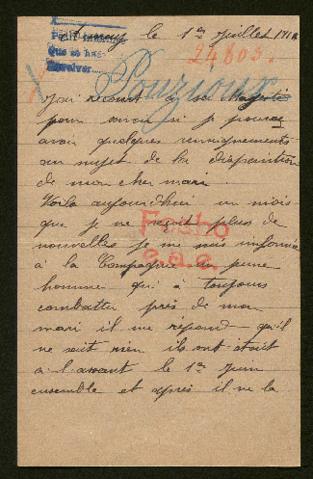 le 1er Juillet 1918
24803.
Pouzioux
J'ai écrit à sa Majesté
pour savoir si je pourrai
avoir quelques renseignements
au sujet de la disparition
de mon cher mari.
Voila aujourd'hui un mois
que je ne reçoit plus de
nouvelles je me suis informée
à la Compagnie un jeune
homme qui à toujours
combattu près de mon
mari il me répond qu'il
ne sait rien ils ont était
à l'avant le 1er Juin
ensemble et après il ne la